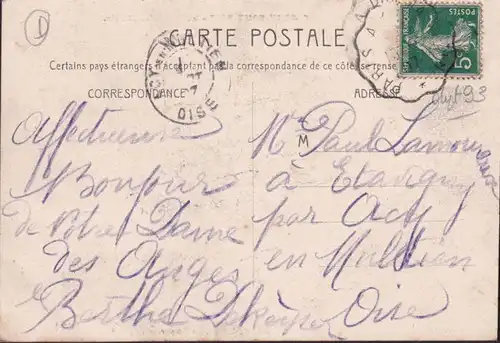 CARTE POSTALE
Certains pays étrangers n'acceptant pas la correspondance de ce côté se renseigner
CORRESPONDANCE
ADRESSE
Affectueux
Bonjour
de Notre Dame
des Anges
Bertha
Mr Paul
à Etavigny
par Acy
en Multien
Oise
M
D
POSTES
5
PARIS A
OISE